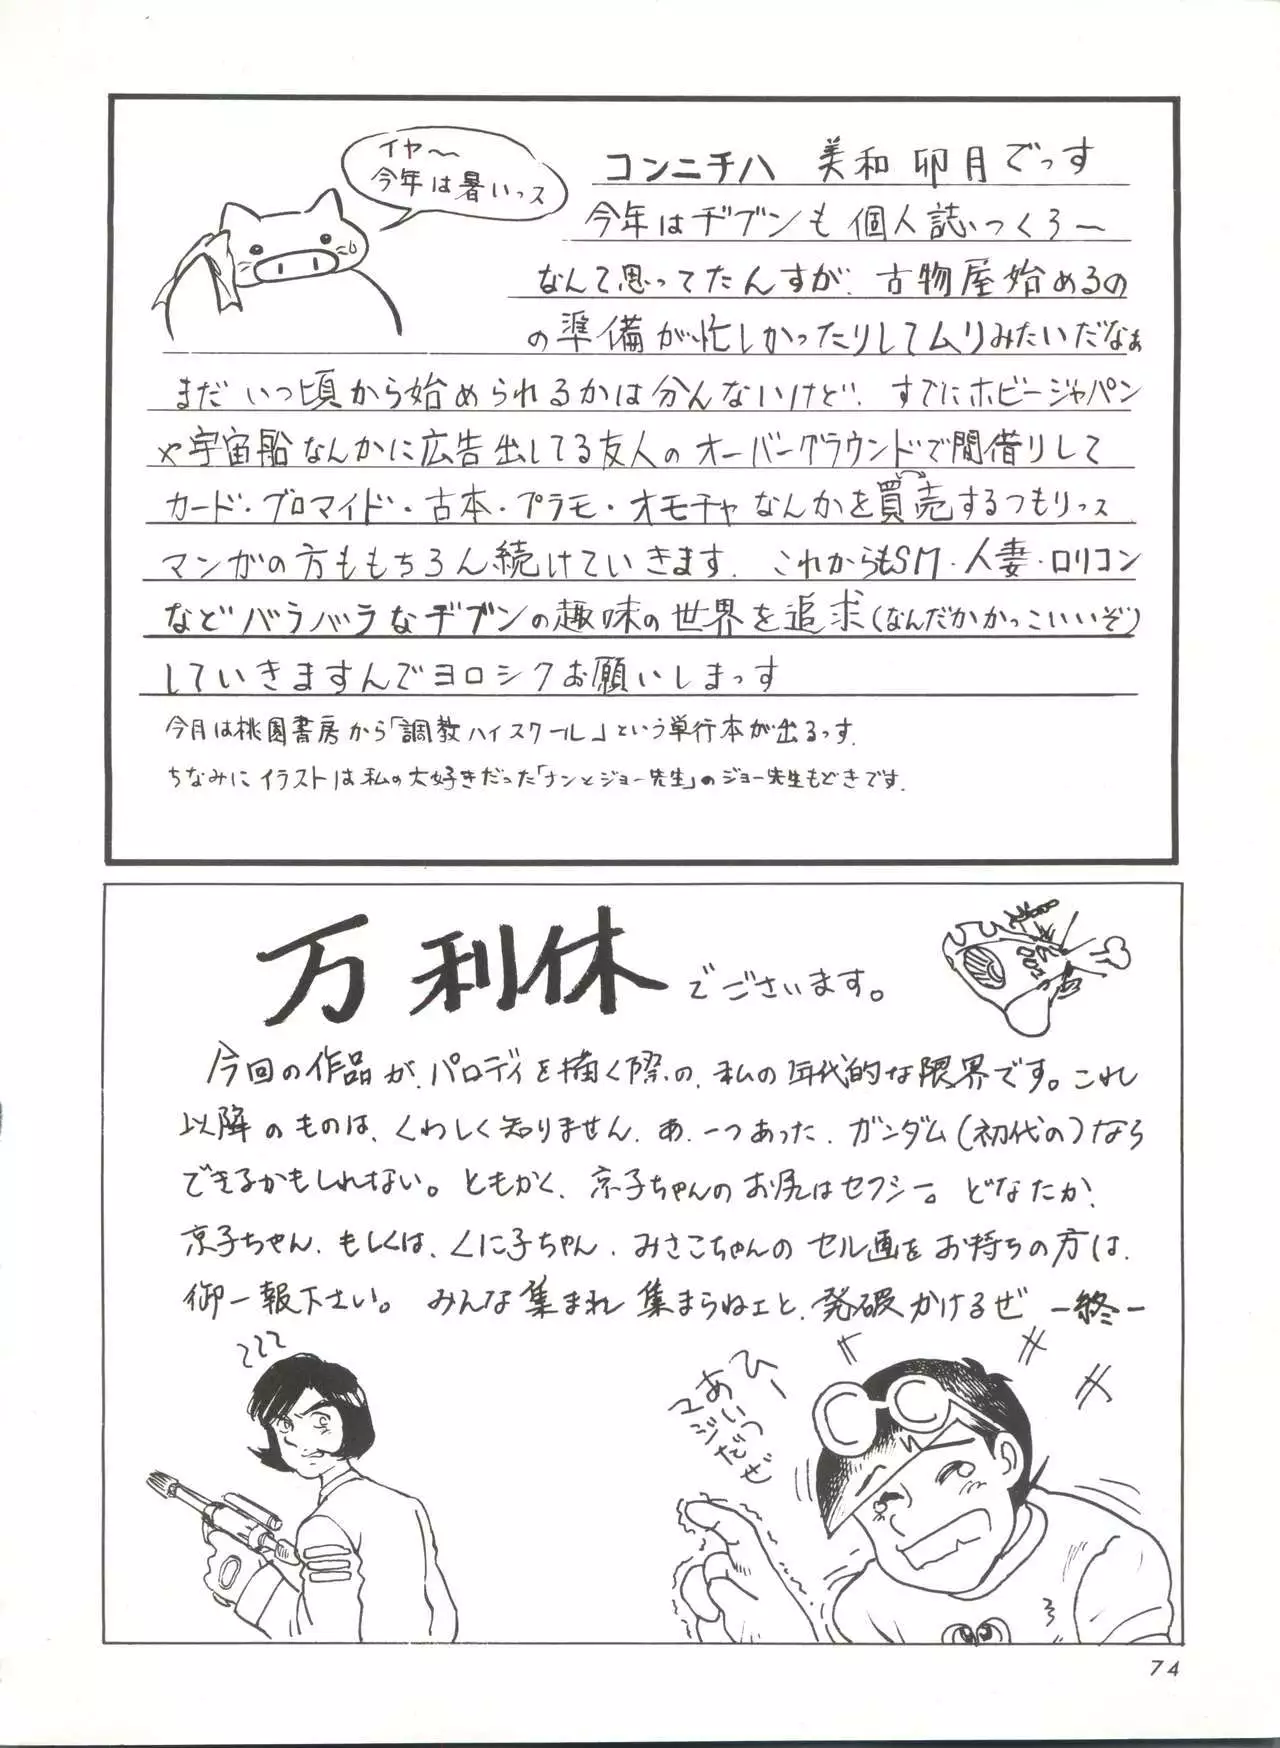 イヤ〜
今年は暑いっス
コンニチハ 美和 卯月でっす
今年はヂブンも個人誌つくろ〜
なんて思ってたんすが、古物屋始めるの
の準備が忙しかったりしてムリみたいだなぁ
まだいつ頃から始められるかは分んないけど、すでにホビージャパン
や宇宙船なんかに広告出してる友人のオーバーグラウンドで間借りして
カード・ブロマイド・古本・プラモ・オモチャなんかを買売するつもりっス
マンガの方ももちろん続けていきます。これからもSM・人妻・ロリコン
などバラバラなヂブンの趣味の世界を追求(なんだかかっこいいぞ)
していきますんでヨロシクお願いしまっす
今月は桃園書房から「調教ハイスクール」という単行本が出るっす。
ちなみにイラストは私の大好きだった「ナンとジョー先生」のジョー先生もどきです。
万利休でございます。
今回の作品が、パロディを描く際の、私の年代的な限界です。これ
以降のものは、くわしく知りません、あ、一つあった、ガンダム(初代の)なら
できるかもしれない。ともかく、京子ちゃんのお尻はセクシー。どなたか、
京子ちゃん、もしくは、くに子ちゃん、みさこちゃんのセル画をお持ちの方は、
御一報下さい。みんな集まれ 集まらねェと、発破かけるぜ —終—
ひー
あいつ
マジだぜ
74